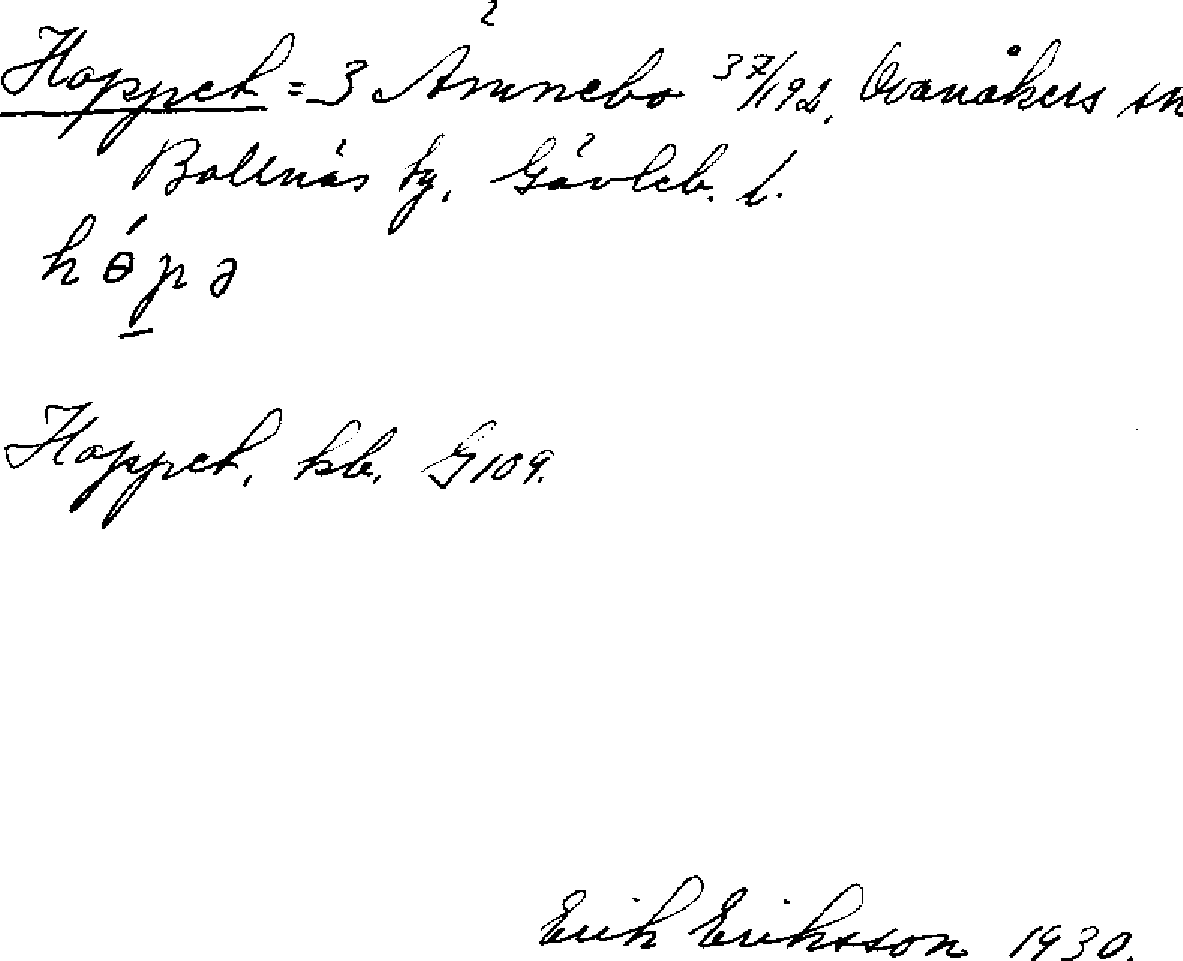 Hoppet = 3 Ämnebo 37/192, Ovanåkers sn
Bollnäs tg, Gävleb. l.
hɵ́pə
Hoppet, kb. G109.
Erik Eriksson 1930.